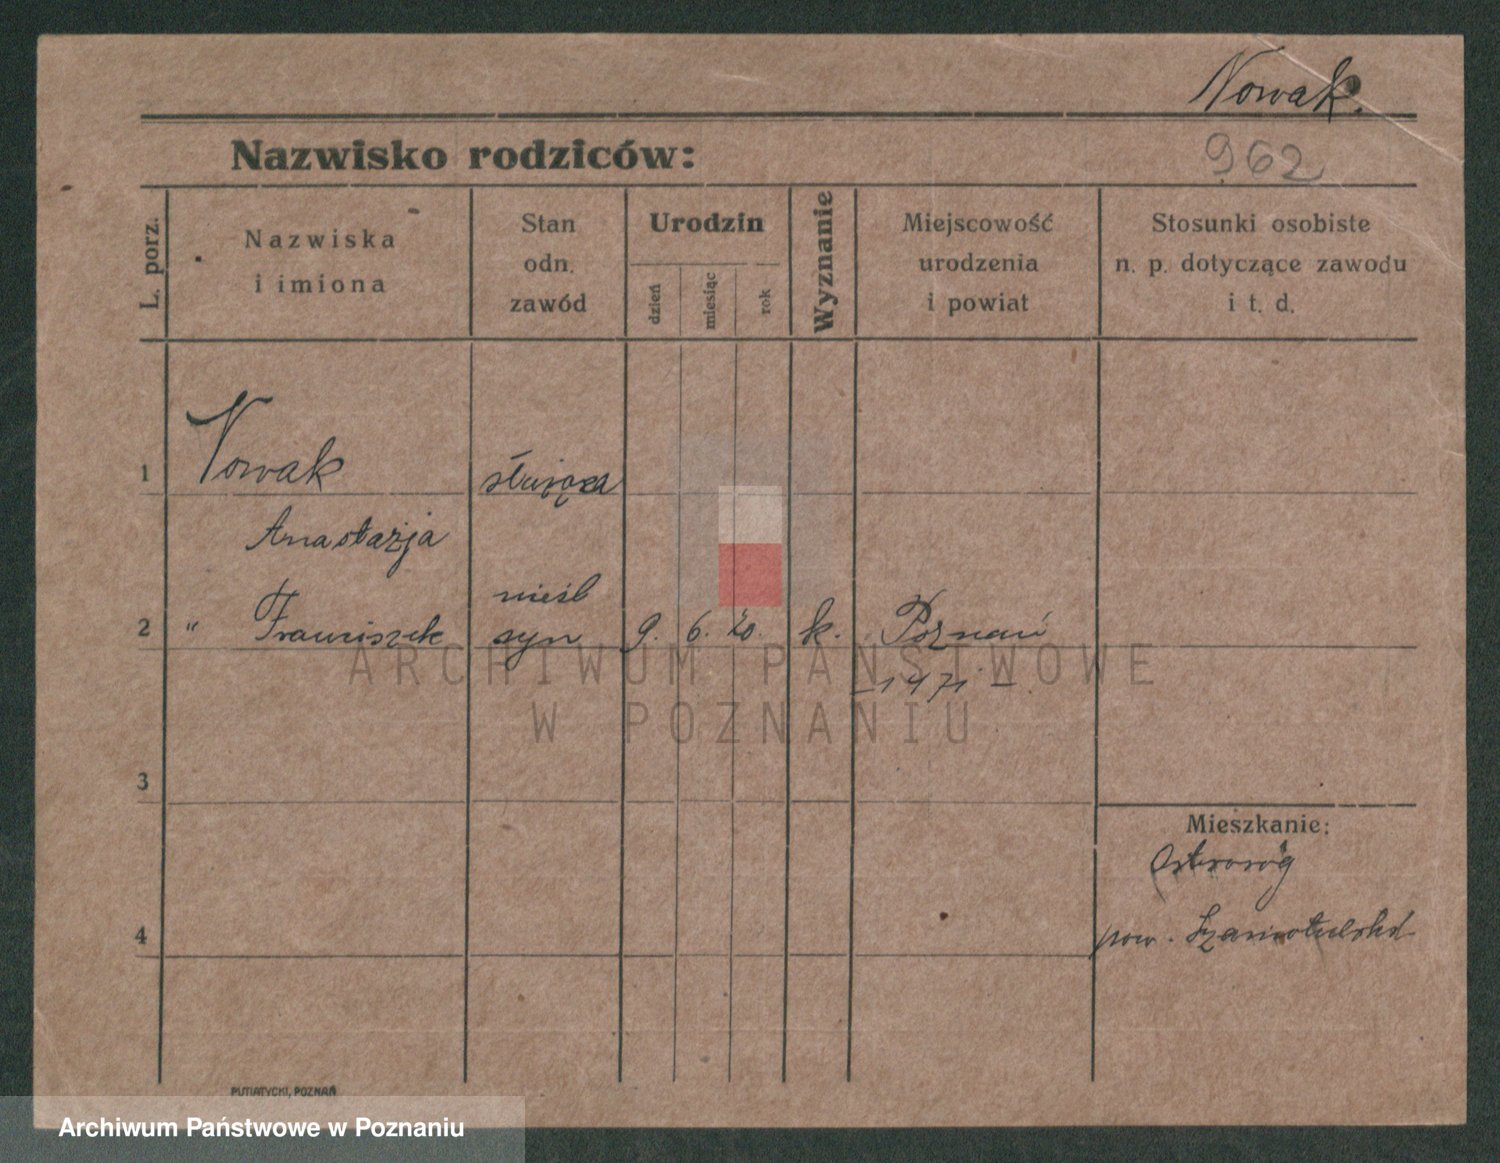 Nowak.
Nazwisko rodziców:
962
L. porz.
Nazwiska
i imiona
Stan
odn.
zawód
Urodzin
dzień
miesiąc
rok
Wyznanie
Miejscowość
urodzenia
i powiat
Stosunki osobiste
n. p. dotyczące zawodu
i t. d.
1 Nowak służąca
Anastazja
nieśl
2 " Franciszek syn 9. 6. 20. k. Poznań
– 1471 –
ARCHIWUM PAŃSTWOWE
W POZNANIU
3
Mieszkanie:
Ostroróg
4 pow. Szamotulski
PUTIATYCKI, POZNAŃ
Archiwum Państwowe w Poznaniu